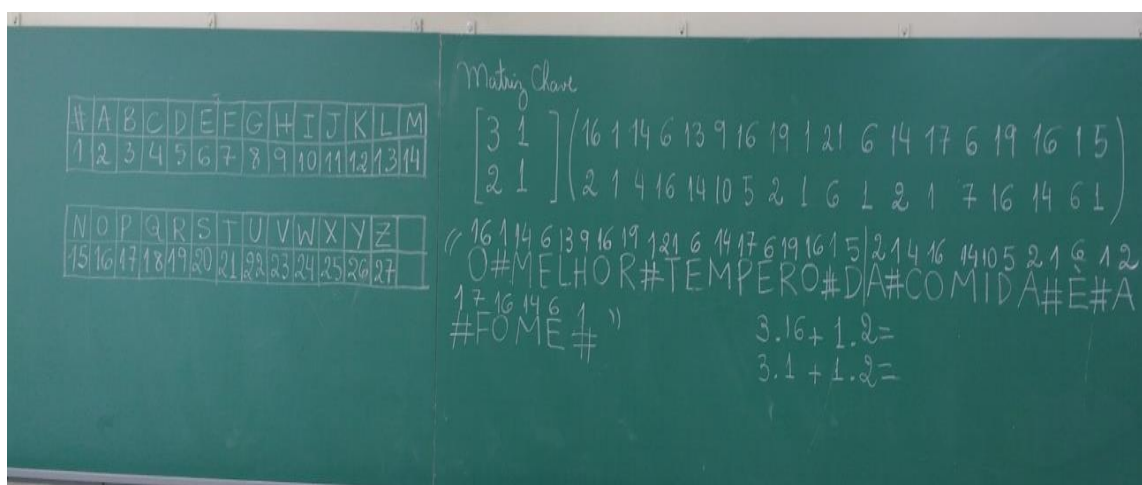 # A B C D E F G H I J K L M
1 2 3 4 5 6 7 8 9 10 11 12 13 14
N O P Q R S T U V W X Y Z
15 16 17 18 19 20 21 22 23 24 25 26 27
Matriz Chave
3 1 16 1 14 6 13 9 16 19 1 21 6 14 17 6 19 16 1 5
2 1 2 1 4 16 14 10 5 2 1 6 1 2 1 7 16 14 6 1
" 16 1 14 6 13 9 16 19 1 21 6 14 17 6 19 16 1 5 | 2 1 4 16 14 10 5 2 1 6 1 2
O#MELHOR#TEMPERO#D|A#COMIDA#É#A
1 7 16 14 6 1 "
#FOME#
3.16 + 1.2=
3.1 + 1.2=